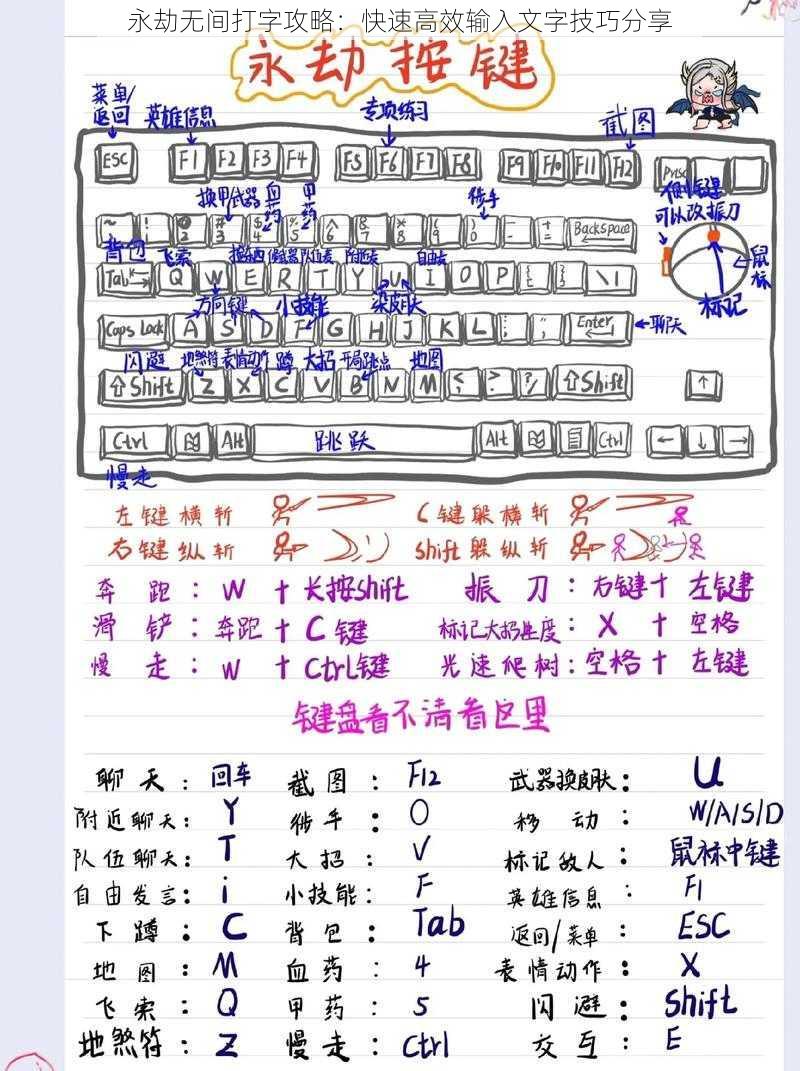 永劫无间打字攻略：快速高效输入文字技巧分享
永劫按键
菜单/
返回
英雄信息
专项练习
截图
ESC F1 F2 F3 F4 F5 F6 F7 F8 F9 F10 F11 F12 Prtsc
换甲 武器 血药 甲药 徒手
侧键
可以改振刀
~ ! @2 #3 $4 %5 ^6 &7 *8 (9 )0 - += Backspace
背包 飞索 队伍 附近 自由
鼠标
Tab Q W E R T Y U I O P { [ } ] \ |
方向键 小技能 染皮肤
标记
Caps Lock A S D F G H J K L : ; " Enter
聊天
闪避 地煞符 表情动作 蹲 大招 开局跳点 地图
⇧Shift Z X C V B N M < , > . ? / ⇧Shift ↑
Ctrl Alt 跳跃 Alt Ctrl ← ↓ →
慢走
左键横斩 C键躲横斩
右键纵斩 shift躲纵斩
奔跑：W+长按shift 振刀：右键+左键
滑铲：奔跑+C键 标记大招进度：X+空格
慢走：W+Ctrl键 光速爬树：空格+左键
键盘看不清看这里
聊天：回车 截图：F12 武器换皮肤：U
附近聊天：Y 徒手：O 移动：W/A/S/D
队伍聊天：T 大招：V 标记敌人：鼠标中键
自由发言：i 小技能：F 英雄信息：F1
下蹲：C 背包：Tab 返回/菜单：ESC
地图：M 血药：4 表情动作：X
飞索：Q 甲药：5 闪避：Shift
地煞符：Z 慢走：Ctrl 交互：E